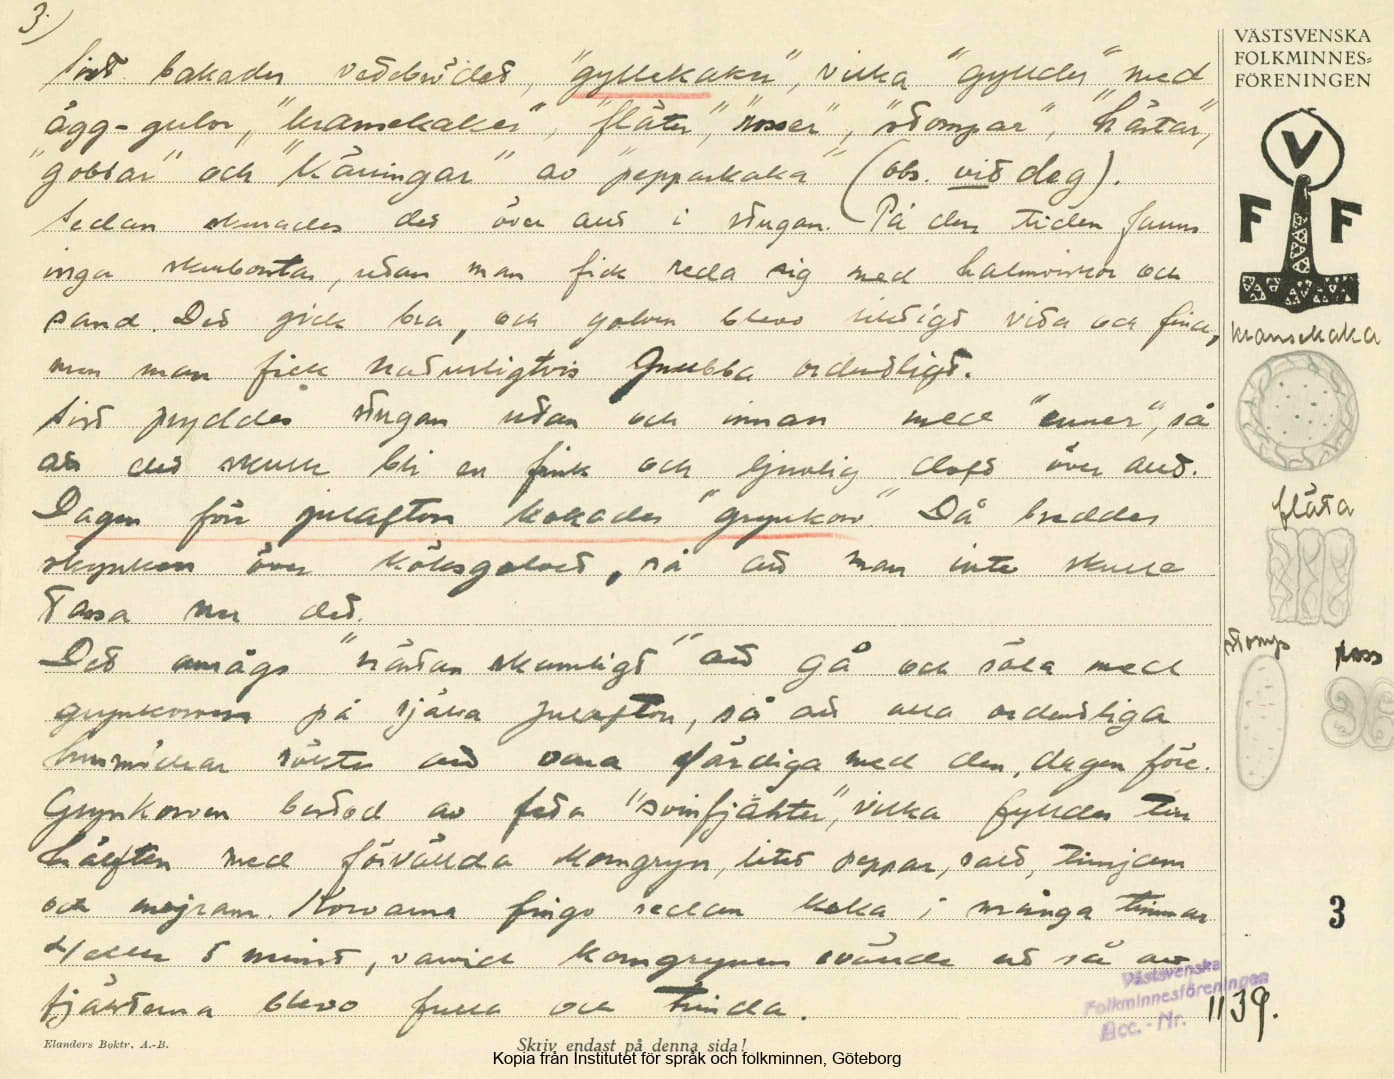 3.)
VÄSTSVENSKA
FOLKMINNES=
FÖRENINGEN
V
F F
Sist bakades vetebrödet, "gyllekaka", vilka "gylldes" med
ägg-gulor, "kransekakor", "flätor", "possar", "stompar", "hästar",
"gobbar" och "käringar" av "pepparkaka" (obs. vit deg).
Sedan skurades det över allt i stugan. På den tiden fanns
inga skurborstar, utan man fick reda sig med halmviskor och
sand. Det gick bra, och golven blevo riktigt vita och fina,
men man fick naturligtvis gnubba ordentligt.
Sist pryddes stugan utan och innan med "enner", så
att det skulle bli en frisk och ljuvlig doft över allt.
Dagen före julafton kokades "grynkorv". Då breddes
skynken över köksgolvet, så att man inte skulle
tassa ner det.
Det ansågs "nästan skamligt" att gå och söla med
grynkorven på själva julafton, så att alla ordentliga
husmödrar sökte att vara färdiga med den, dagen före.
Grynkorven bestod av feta "svinfjälster", vilka fylldes till
hälften med förvällda korngryn, litet peppar, salt, timjam
och mejram. Korvarna fingo sedan koka i många timmar
4 eller 5 minst, varvid korngrynen svällde ut så att
fjälsterna blevo fulla och trinda.
kransekaka
fläta
stomp
poss
3
Västsvenska
Folkminnesföreningen
Acc.-Nr. 1139.
Elanders Boktr. A.-B.
Skriv endast på denna sida!
Kopia från Institutet för språk och folkminnen, Göteborg